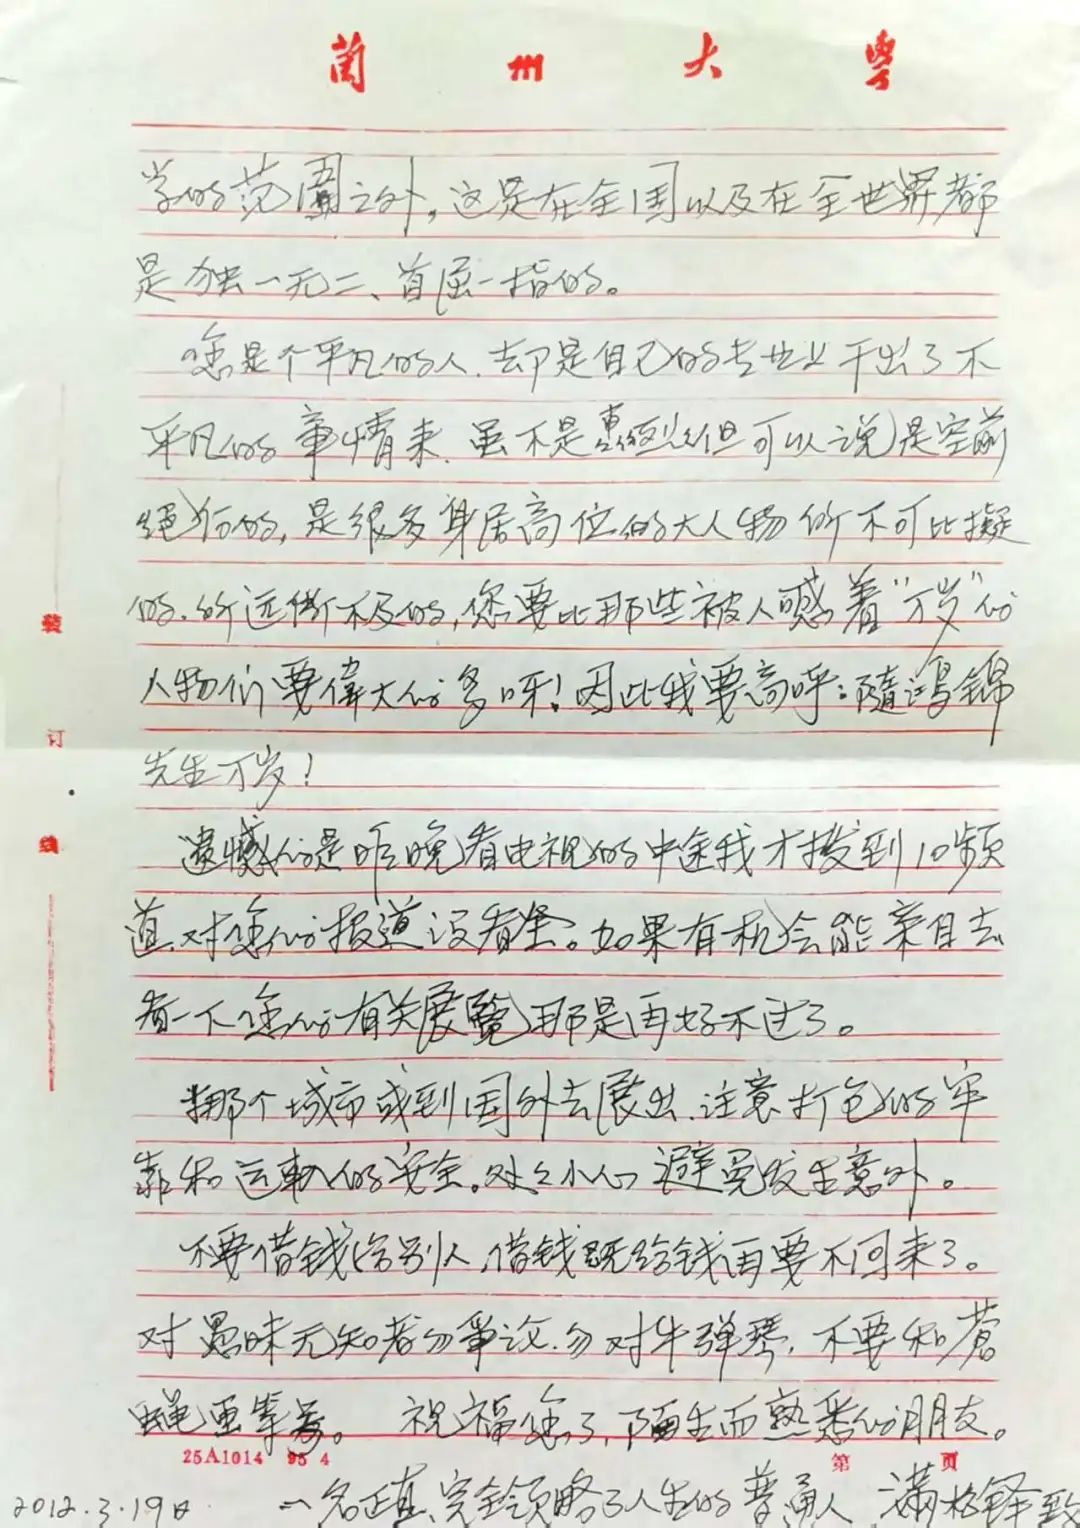 蘭州大學
学的范围之外,这是在全国以及在全世界都
是独一无二、首屈一指的。
您是个平凡的人.却是自己的专业上干出了不
平凡的事情来.虽不是但可以说是空前
绝后的,是很多身居高位的大人物所不可比擬
的.所远斯不及的,您要比那些被人喊着“万岁”的
人物们要偉大的多呀!因此我要高呼:隨鴻錦
先生万岁!
遗憾的是昨晚看电视的中途我才拨到10频
道.对您的报道没看全。如果有机会能亲自去
看一下您的有关展覽那是再好不过了。
挪个城市或到国外去展出.注意打包的牢
靠和运輸的安全。处处小心避免发生意外。
不要借钱给别人,借钱既给钱再要不回来了。
对愚昧无知者勿争议.勿对牛弹琴,不要和蒼
蝇画等号。 祝福您了,陌生而熟悉的朋友。
25A1014 95 4 第 页
2012.3.19日 一名正真、完全领略了人生的普通人 满格铎致
装
订
线